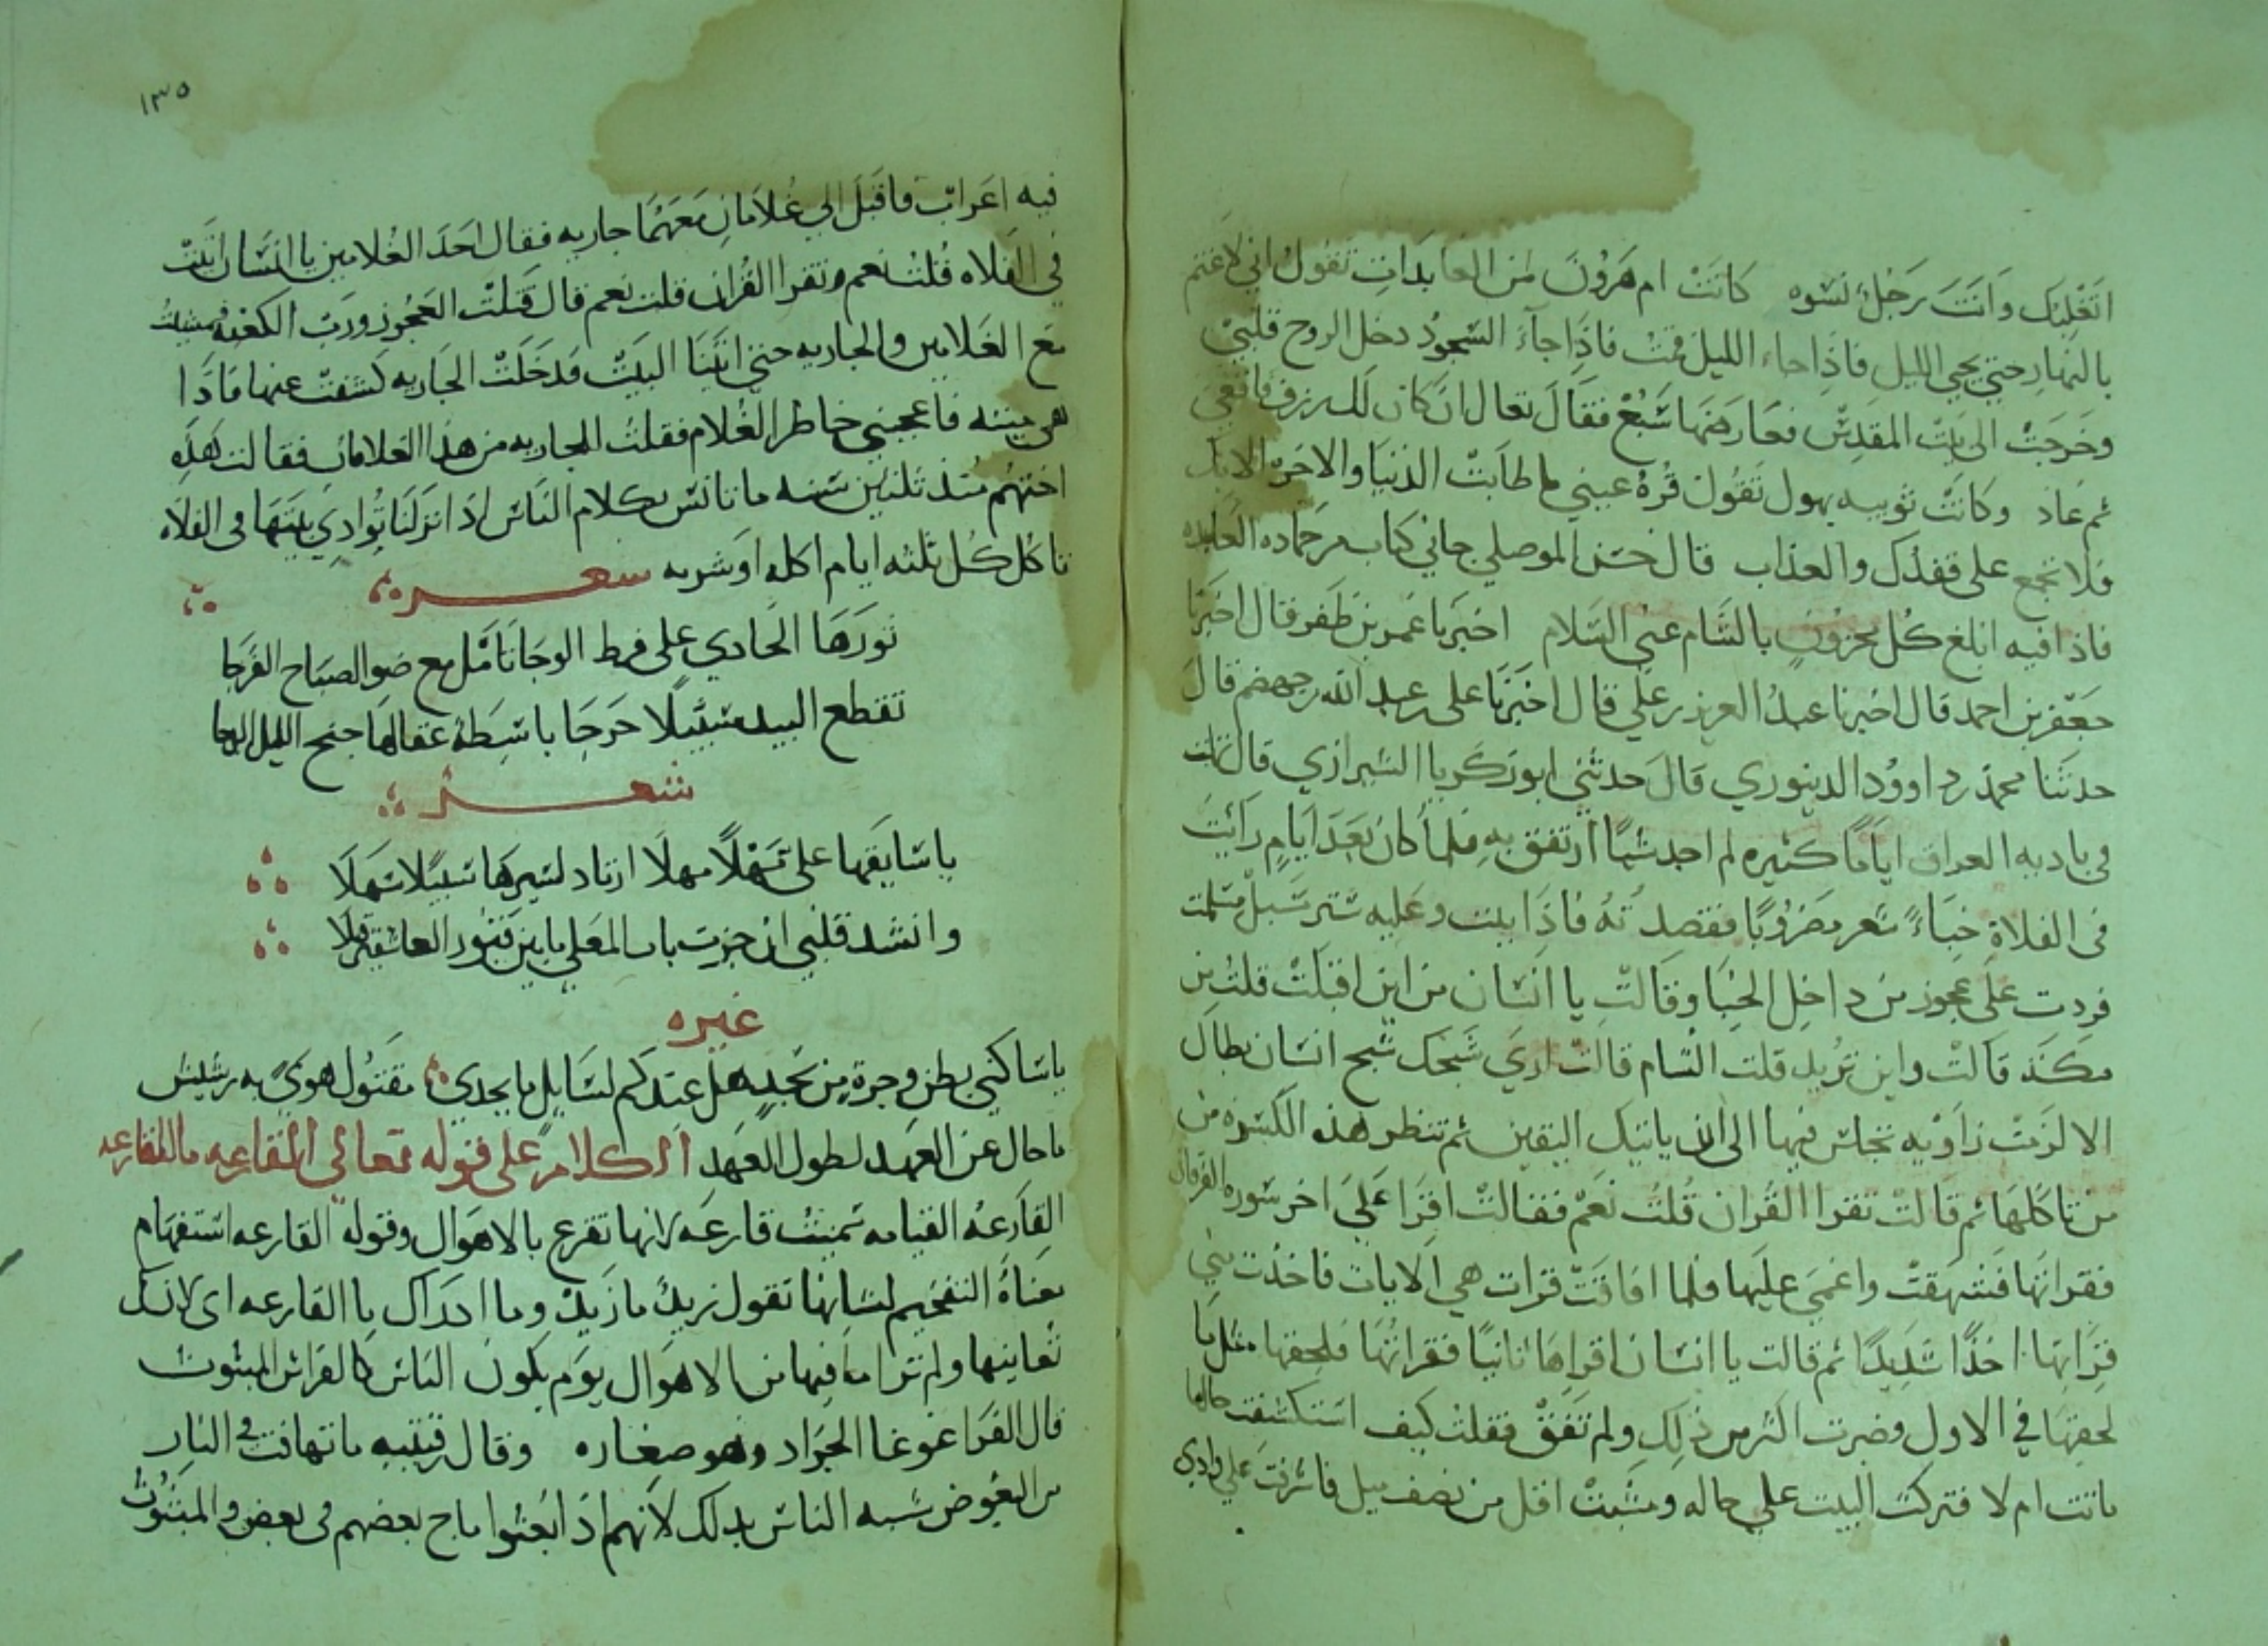 اتغلبك وانت رجل نسوه كانت ام هرون من العابدات تقول اني لاغتم
بالنهار حتى يجي الليل فاذا جاء الليل قمت فاذا جاء السحور دخل الروح قلبي
وخرجت الى بيت المقدس فعارضها سبع فقال تعال ان كان لك رزق فاقعى
ثم عاد وكانت ثويبه بهول تقول قرة عيني ما طابت الدنيا والاخرة الا بك
فلا تجمع على فقدك والعذاب قال حسن الموصلي جاني كتاب من حماده العابده
فاذا فيه ابلغ كل محزون بالشام عني السلام اخبرنا عمر بن ظفر قال اخبرنا
جعفر بن احمد قال اخبرنا عبد العزيز بن علي قال اخبرنا على بن عبد الله بن جهضم قال
حدثنا محمد بن داوود الدينوري قال حدثني ابو زكريا الشيرازي قال تهت
في باديه العراق اياما كثيره لم اجد شيا ارتفق به فلما كان بعد ايام رايت
في الفلاة خباء شعر مضروبا فقصدته فاذا بيت وعليه ستر مسبل فسلمت
فردت على عجوز من داخل الخبا وقالت يا انسان من اين اقبلت قلت من
مكة قالت واين تريد قلت الشام قالت ارى شبحك شبح انسان بطال
الا لزمت زاويه تجلس فيها الى ان ياتيك اليقين ثم تنظر هذه الكسره من
من تاكلها ثم قالت تقرا القران قلت نعم فقالت اقرا علي اخر سوره الفرقان
فقراتها فشهقت واغمي عليها فلما افاقت قرات هي الايات فاخذت مني
قراتها اخذا شديدا ثم قالت يا انسان اقراها ثانيا فقراتها فلحقها مثل ما
لحقها في الاول وضرت اكثر من ذلك ولم تفق فقلت كيف استكشفت حالها
ماتت ام لا فتركت البيت على حاله ومشيت اقل من نصف ميل فاشرفت على وادي
١٣٥
فيه اعراب فاقبل الي غلامان معهما جاريه فقال احد الغلامين يا انسان اتيت
في الفلاه قلت نعم وتقرا القران قلت نعم قال قتلت العجوز ورب الكعبه فمشيت
مع الغلامين والجاريه حتى اتينا البيت فدخلت الجاريه كشفت عنها فاذا
هي ميته فاعجبني خاطر الغلام فقلت للجاريه من هذا الغلامان فقالت هذه
اختهم منذ ثلثين سنه ما تانس بكلام الناس اذا نزلنا بوادي بيتها في الفلاه
تاكل كل ثلثه ايام اكله او شربه شعره
نورها الحادي على فرط الوجا تامل مع ضو الصباح الفرجا
تقطع البيد سبيلا حرجا باسطة عقالها جنح الليل الدجا
شعر
يا سايقها على سهلا مهلا ارتاد لسيرها سبيلا سهلا
وانشد قلبي ان جزت باب المعلى ما بين قبور العاشقين قبلا
غيره
يا ساكني بطن وجرة من نجد هل عندكم لسايل ما يجدي مقتول هوى به رسيس
ما حال عن العهد لطول العهد الكلام على قوله تعالى القارعه ما القارعه
القارعه القيامه سميت قارعه لانها تقرع بالاهوال وقوله القارعه استفهام
معناه التفخيم لشانها تقول زيد ما زيد وما ادراك ما القارعه اى لانك
تعاينها ولم ترا ما فيها من الاهوال يوم يكون الناس كالفراش المبثوث
قال الفرا غوغا الجراد وهو صغاره وقال قتيبه ما تهافت في النار
من البعوض شبه الناس بذلك لانهم اذا بعثوا ماج بعضهم في بعض والمبثوث